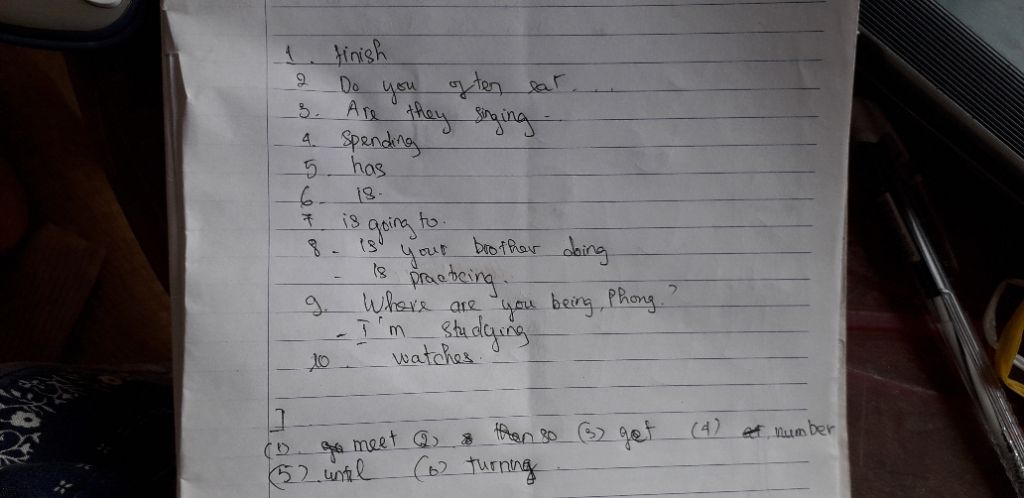 1. finish
2 Do you often eat....
3. Are they singing -
4. Spending
5. has
6- is.
7. is going to.
8 - is your brother doing
- is practicing.
9. Where are you being, Phong?
- I'm studying
10. watches.
]
(1). meet (2) then so (3) get (4) number
(5). until (6) turning